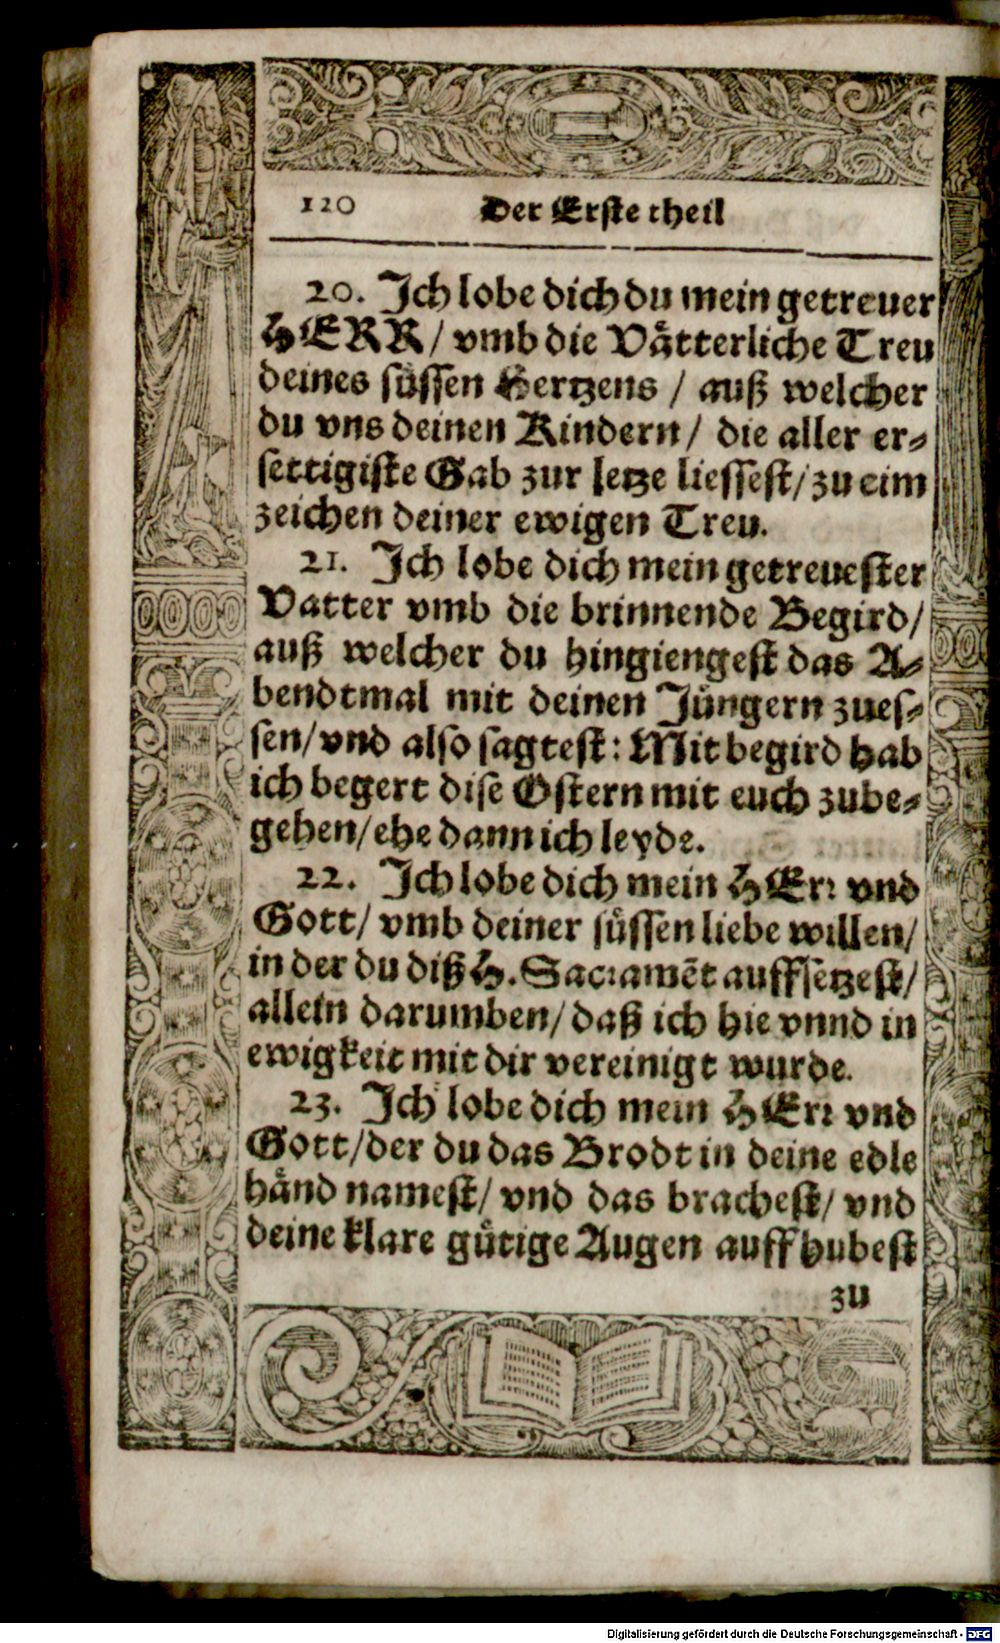 120 Der Erste theil
20. Ich lobe dich du mein getreuer
HERR/ vmb die Vätterliche Treu
deines süssen Hertzens / auß welcher
du vns deinen Kindern/ die aller er-
settigiste Gab zur letze liessest/ zu eim
zeichen deiner ewigen Treu.
21. Ich lobe dich mein getreuester
Vatter vmb die brinnende Begird/
auß welcher du hingiengest das A-
bendtmal mit deinen Jüngern zues-
sen/ vnd also sagtest: Mit begird hab
ich begert dise Ostern mit euch zube-
gehen/ ehe dann ich leyde.
22. Ich lobe dich mein HErr vnd
Gott/ vmb deiner süssen liebe willen/
in der du diß H. Sacramēt auffsetzest/
allein darumben/ daß ich hie vnnd in
ewigkeit mit dir vereinigt wurde.
23. Ich lobe dich mein HErr vnd
Gott/ der du das Brodt in deine edle
händ namest/ vnd das brachest/ vnd
deine klare gütige Augen auffhubest
zu
Digitalisierung gefördert durch die Deutsche Forschungsgemeinschaft - DFG